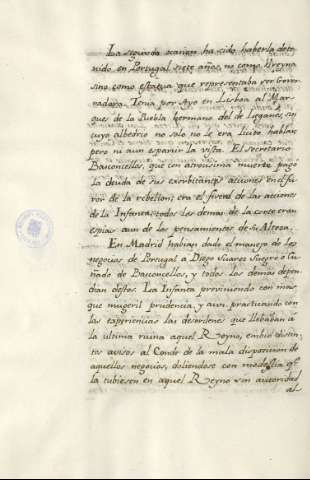 La segunda ocasion ha sido haberla dete
nido en Portugal siete años, no como Vireyna
sino como estatua que representaba ser Gover
nadora. Tenia por Ayo en Lisboa al Mar
ques de la Puebla hermano del de Leganes, sin
cuyo albedrio no solo no le era licito hablar,
pero ni aun esparcir la vista. El secretario
Basconcellos, que con atrocisima muerte pagó
la deuda de sus exorbitantes acciones en el fu
ror de la rebelion; era el fiscal de las acciones
de la Infanta, todos los demas de la corte eran
espias aun de los pensamientos de Su Alteza.
En Madrid habian dado el manejo de los
negocios de Portugal a Diego Suarez suegro o Cu
ñado de Basconcellos, y todos los demas depen
dian destos. La Infanta previniendo con mas
que mugeril prudencia, y aun practicando con
las experiencias los desordenes que llebaban a
la ultima ruina aquel Reyno, embió distin
tos avisos al Conde de la mala disposicion de
aquellos negocios, doliendose con modestia qe
la tubiesen en aquel Reyno sin autoridad
al